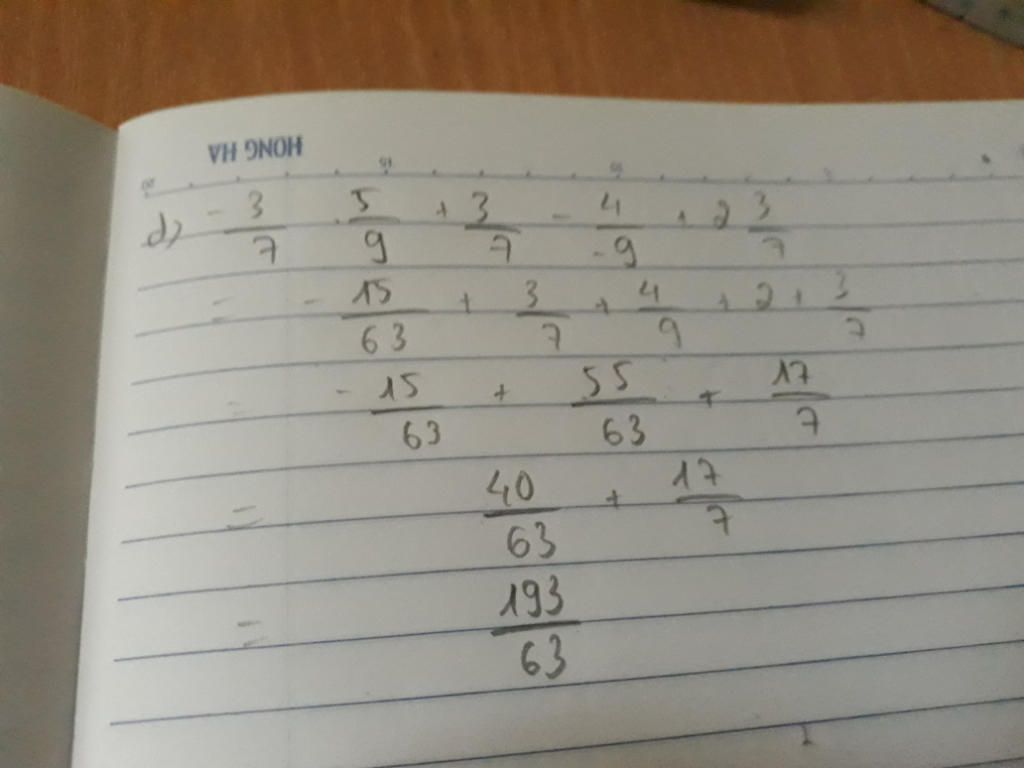 HONG HA
d) -3/7 . 5/9 + 3/7 - 4/-9 + 2 3/7
= -15/63 + 3/7 + 4/9 + 2 + 3/7
= -15/63 + 55/63 + 17/7
= 40/63 + 17/7
= 193/63